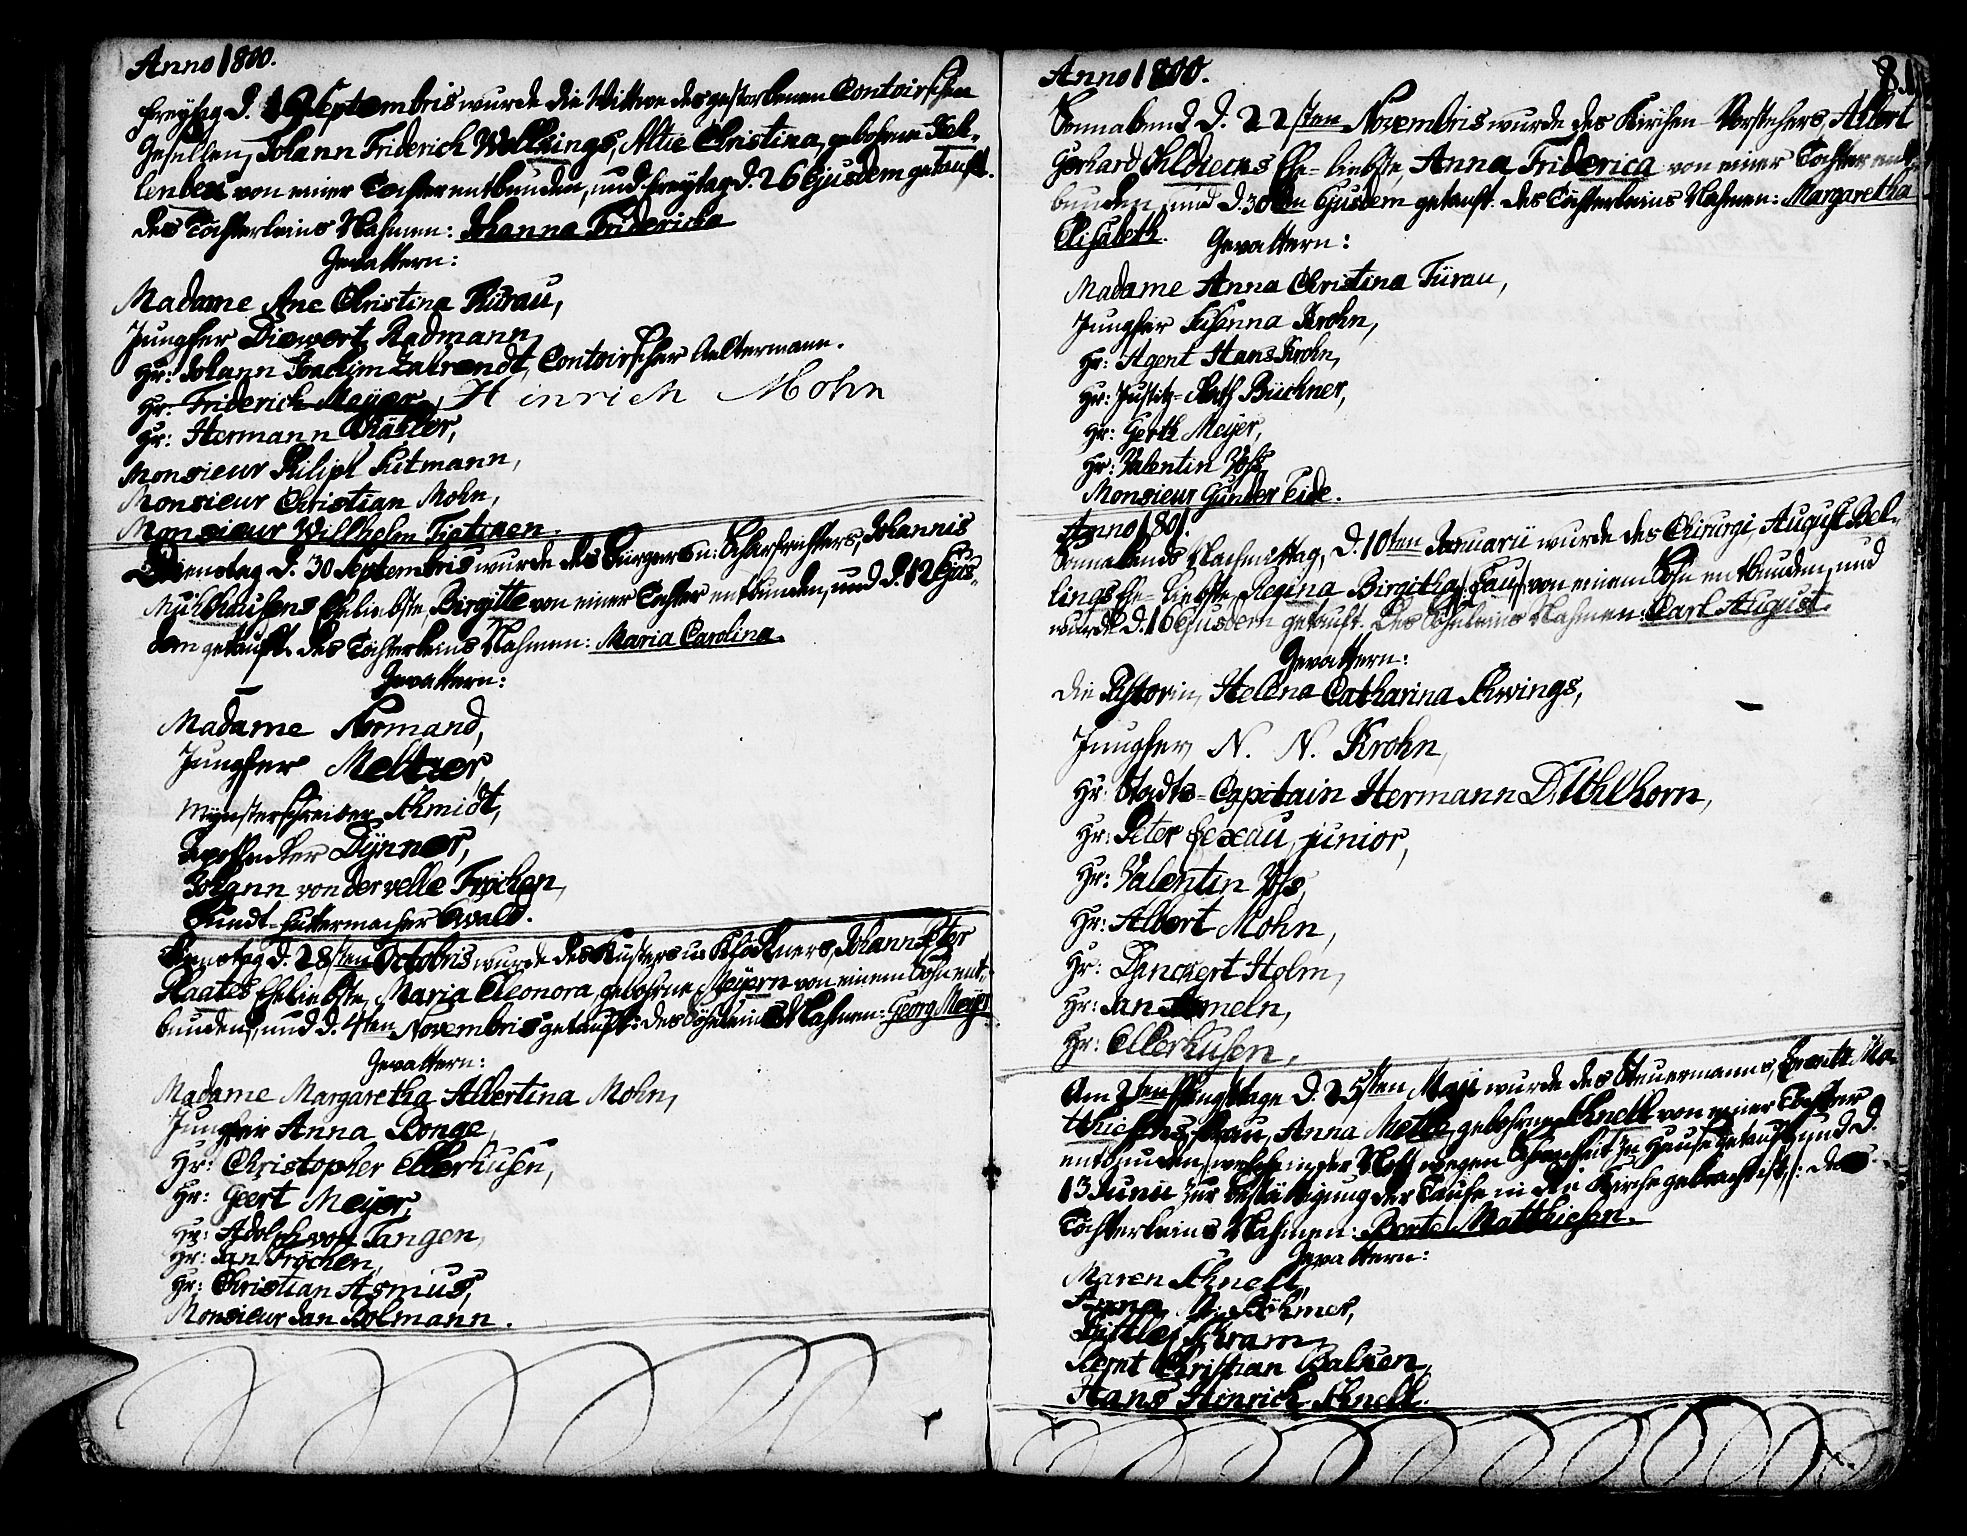 Anno 1800.
Freytag d. 19 Septembris wurde die Wittwe des gestorbenen Contoirschen
Gesellen, Johann Friderich Wellings, Altie Christina, gebohrne
von einer Tochter entbunden, und Freytag d. 26 Ejusdem getauft.
des Töchterleins Nahmen: Johanna Fridericka
Gevattern:
Madame Ane Christina Fürau,
Jungfer Diewert Radmann,
Hr: Johann Joachim Zabrendt, Contoirscher Aeltermann.
Hr: Friderich Meyer, Hinrich Mohn
Hr: Hermann Kähler,
Monsieur Philipt Sutmann,
Monsieur Christian Mohn,
Monsieur Willhelm Tietjen.
Dienstag d. 30 Septembris wurde des Bürgers u: Scharfrichters, Johannis
Mühlhausens Eheliebste, Birgitte von einer Tochter entbunden, und d. 12 Ejus-
dem getauft. des Töchterleins Nahmen: Maria Carolina.
Gevattern:
Madame Normand,
Jungfer Meltzer,
Mynsterschreiber Schmidt,
Apothecker Dynner,
Johann von der velle Frøchen,
Hutermacher Ewald.
Dienstag d. 28sten Octobris wurde des Küsters u: Klöckners, Johann Peter
Klaates Eheliebste, Maria Eleonora, gebohrne Meyern von einem Sohn ent-
bunden, und d. 4ten Novembris getauft: des Söhnleins Nahmen: Georg Meyer
Gevattern:
Madame Margaretha Albertina Mohn,
Jungfer Anna Bonge,
Hr: Christopher Ellerhusen,
Hr: Geert Meyer,
Hr: Adolph von Tangen,
Hr: Jan Frøchen,
Hr: Christian Asmus,
Monsieur Jan Bolmann.
Anno 1800.
81
Sonnabend d. 22sten Novembris wurde des Kirchen-Vorstehers, Albert
Gerhard Ehe-liebste, Anna Friderica von einer Tochter ent-
bunden, und d. 30ten Ejusdem getauft. des Töchterleins Nahmen: Margaretha
Elisabeth. Gevattern:
Madame Anna Christina Fürau,
Jungfer Susanna Krohn,
Hr: Agent Hans Krohn,
Hr: Justitz-Rath Büchner,
Hr: Gerth Meyer,
Hr: Valentin Voss,
Monsieur Günder Eide.
Anno 1801.
Sonnabends Nachmittag, d. 10ten Januarii wurde des Chirurgi, August Bel-
lings Ehe-liebste, Regina Birgitha von einem Sohn entbunden, und
wurde d. 16 Ejusdem getauft. Des Söhnleins Nahmen: Carl August.
Gevattern:
Die Pastorin, Helena Catharina Schwings,
Jungfer N. N. Krohn,
Hr: Stadts-Capitain Hermann D. Uhlhorn,
Hr: Peter Fexau, junior,
Hr: Valentin Voss,
Hr: Albert Mohn,
Hr: Danckert Holm,
Hr: Jan
Hr: Ellerhusen,
Am 2ten Pfingsttage d. 25sten Maji wurde des Steuermanns, Ma-
thiesens Frau, Anna Metta, gebohrne Schnell von einer Tochter
entbunden, welche in der Noth wegen Schwachheit zu Hause getauft, und d.
13 Junii zur Bestättigung der Taufe in die Kirche gebracht ist: des
Töchterleins Nahmen: Bente Matthiesen.
Gevattern:
Maren Schnell,
Anna Böhmer,
Schram,
Bernt Christian Balken,
Hans Hinrich Schnell.